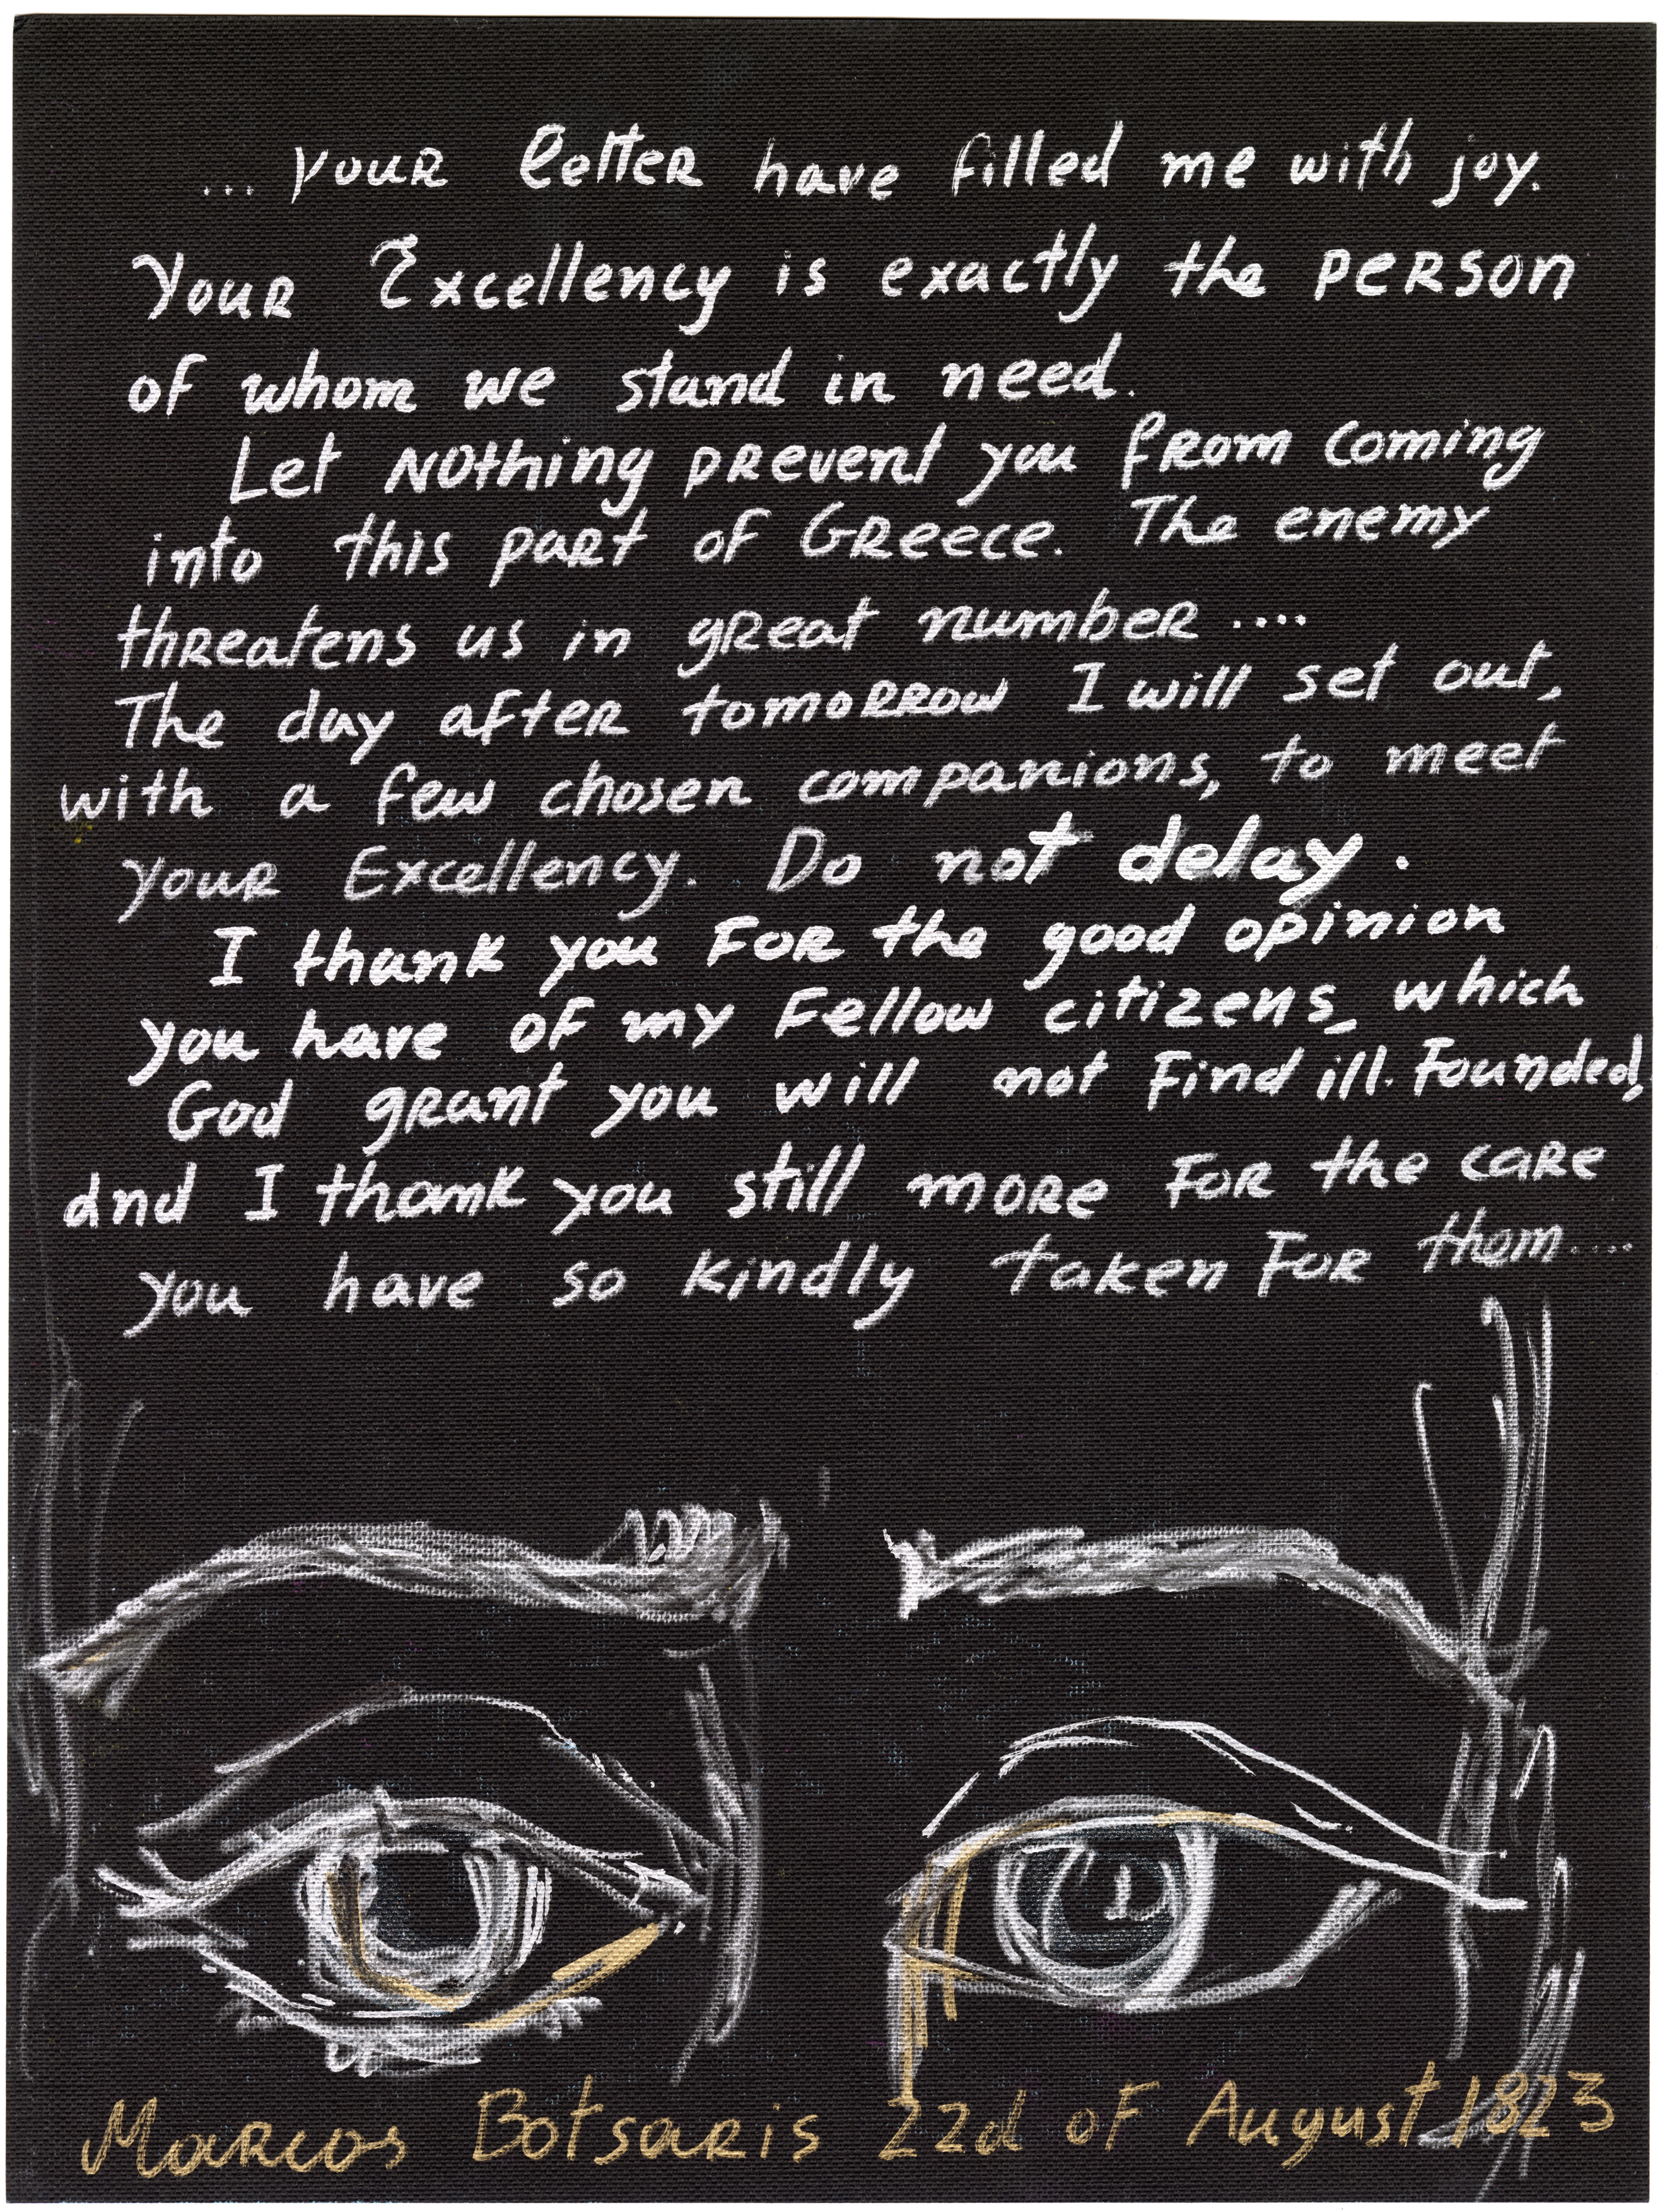 ... your letter have filled me with joy.
Your Excellency is exactly the person
of whom we stand in need.
Let nothing prevent you from coming
into this part of Greece. The enemy
threatens us in great number ....
The day after tomorrow I will set out,
with a few chosen companions, to meet
your Excellency. Do not delay.
I thank you for the good opinion
you have of my fellow citizens_ which
God grant you will not find ill-founded,
and I thank you still more for the care
you have so kindly taken for them....
Marcos Botsaris 22d of August 1823